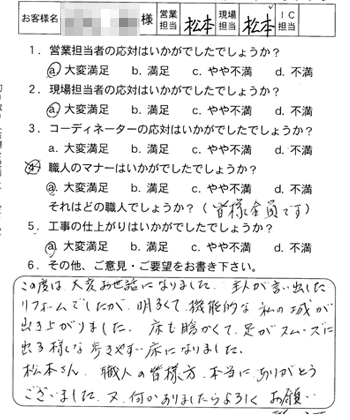 お客様名 様 営業担当 松本 現場担当 松本 IC担当
1. 営業担当者の応対はいかがでしたでしょうか?
a. 大変満足 b. 満足 c. やや不満 d. 不満
2. 現場担当者の応対はいかがでしたでしょうか?
a. 大変満足 b. 満足 c. やや不満 d. 不満
3. コーディネーターの応対はいかがでしたでしょうか?
a. 大変満足 b. 満足 c. やや不満 d. 不満
4. 職人のマナーはいかがでしたでしょうか?
a. 大変満足 b. 満足 c. やや不満 d. 不満
それはどの職人でしょうか?(皆様全員です)
5. 工事の仕上がりはいかがでしたでしょうか?
a. 大変満足 b. 満足 c. やや不満 d. 不満
6. その他、ご意見・ご要望をお書き下さい。
この度は、大変お世話になりました。主人が言い出した
リフォームでしたが、明るくて、機能的な私の城が
出き上がりました。床も暖かくて、足がスムーズに
出る様な歩きやすい床になりました。
松本さん、職人の皆様方、本当にありがとう
ございました。又、何かありましたらよろしくお願い